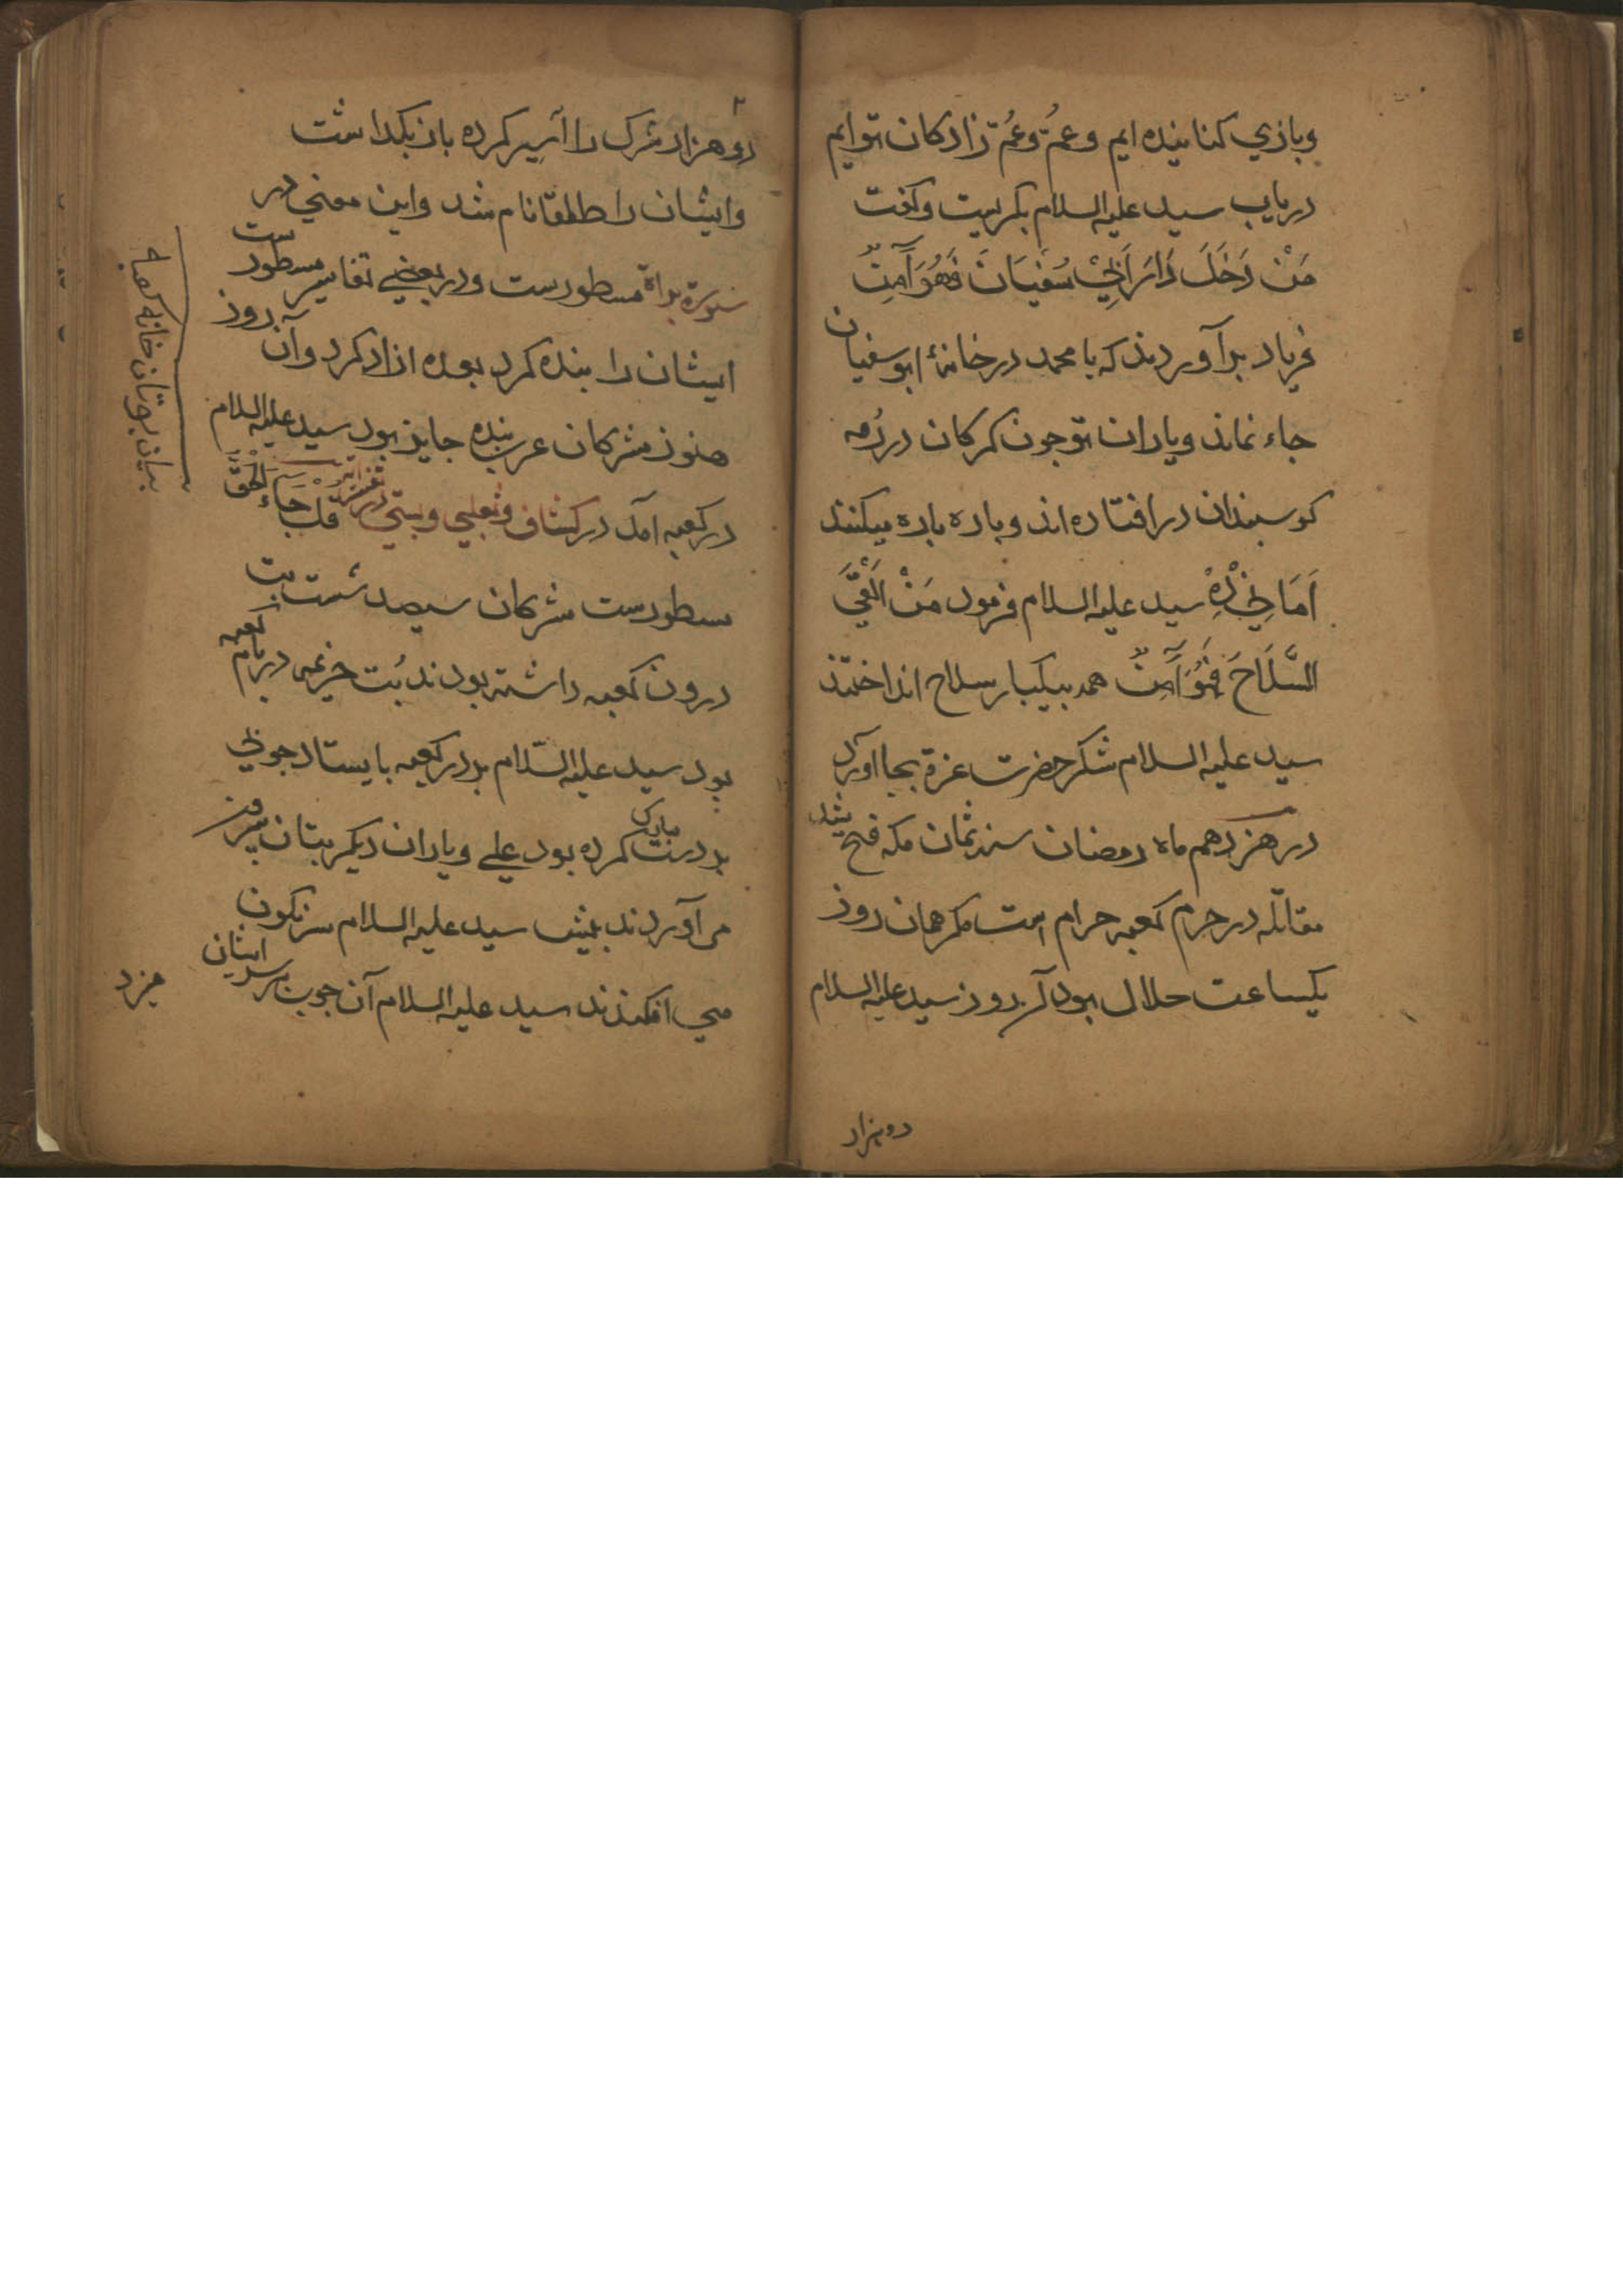 وبازي كنانيده ايم وعمّ وعمّ زادكان توايم
درياب سيد عليه السلام بكريست وكفت
مَنْ دَخَلَ دَارَ اَبِيْ سُفْيَانَ فَهُوَ آمِنٌ
فرياد برآوردند كه يا محمد در خانهٔ ابوسفيان
جاء نماند وياران تو جون كركان در رمه
كوسبندان در افتاده اند وباره باره ميكنند
سيد عليه السلام فرمود مَنْ اَلْقَى
السِّلَاحَ فَهُوَ آمِنٌ همه بيكبار سلاح انداختند
سيد عليه السلام شكر حضرت عزة بجا آورد
در هزدهم ماه رمضان سنه ثمان مكه فتح شد
مقاتله در حرم كعبه حرام است مكر همان روز
يكساعت حلال بود آن روز سيد عليه السلام
دو هزار
دو هزار مشرك را اسير كرده باز بكداشت
وايشان را طلقا نام شد واين معني در
سورة براة مسطورست ودر بعضي تفاسير مسطورست
ايشان را بنده كرد بعده ازاد كرد وآن روز
هنوز مشركان عرب بنده جايز بود سيد عليه السلام
در كعبه آمد در كشاف وثعلبي وبستي در تفسير قل جَاءَ الْحَقُّ
مسطورست مشركان سيصد شست بت
درون كعبه داشته بودند بُت خزيمه در بام كعبه
بود سيد عليه السلام بر در كعبه بايستاد جوبي
بر دست مبارك كرده بود علي وياران ديكر بتان بيرون
مي آوردند پيش سيد عليه السلام سرنكون
مي افكندند سيد عليه السلام آن جوب بر سر ايشان
ميزد
بيان بوتان خانه كعبه